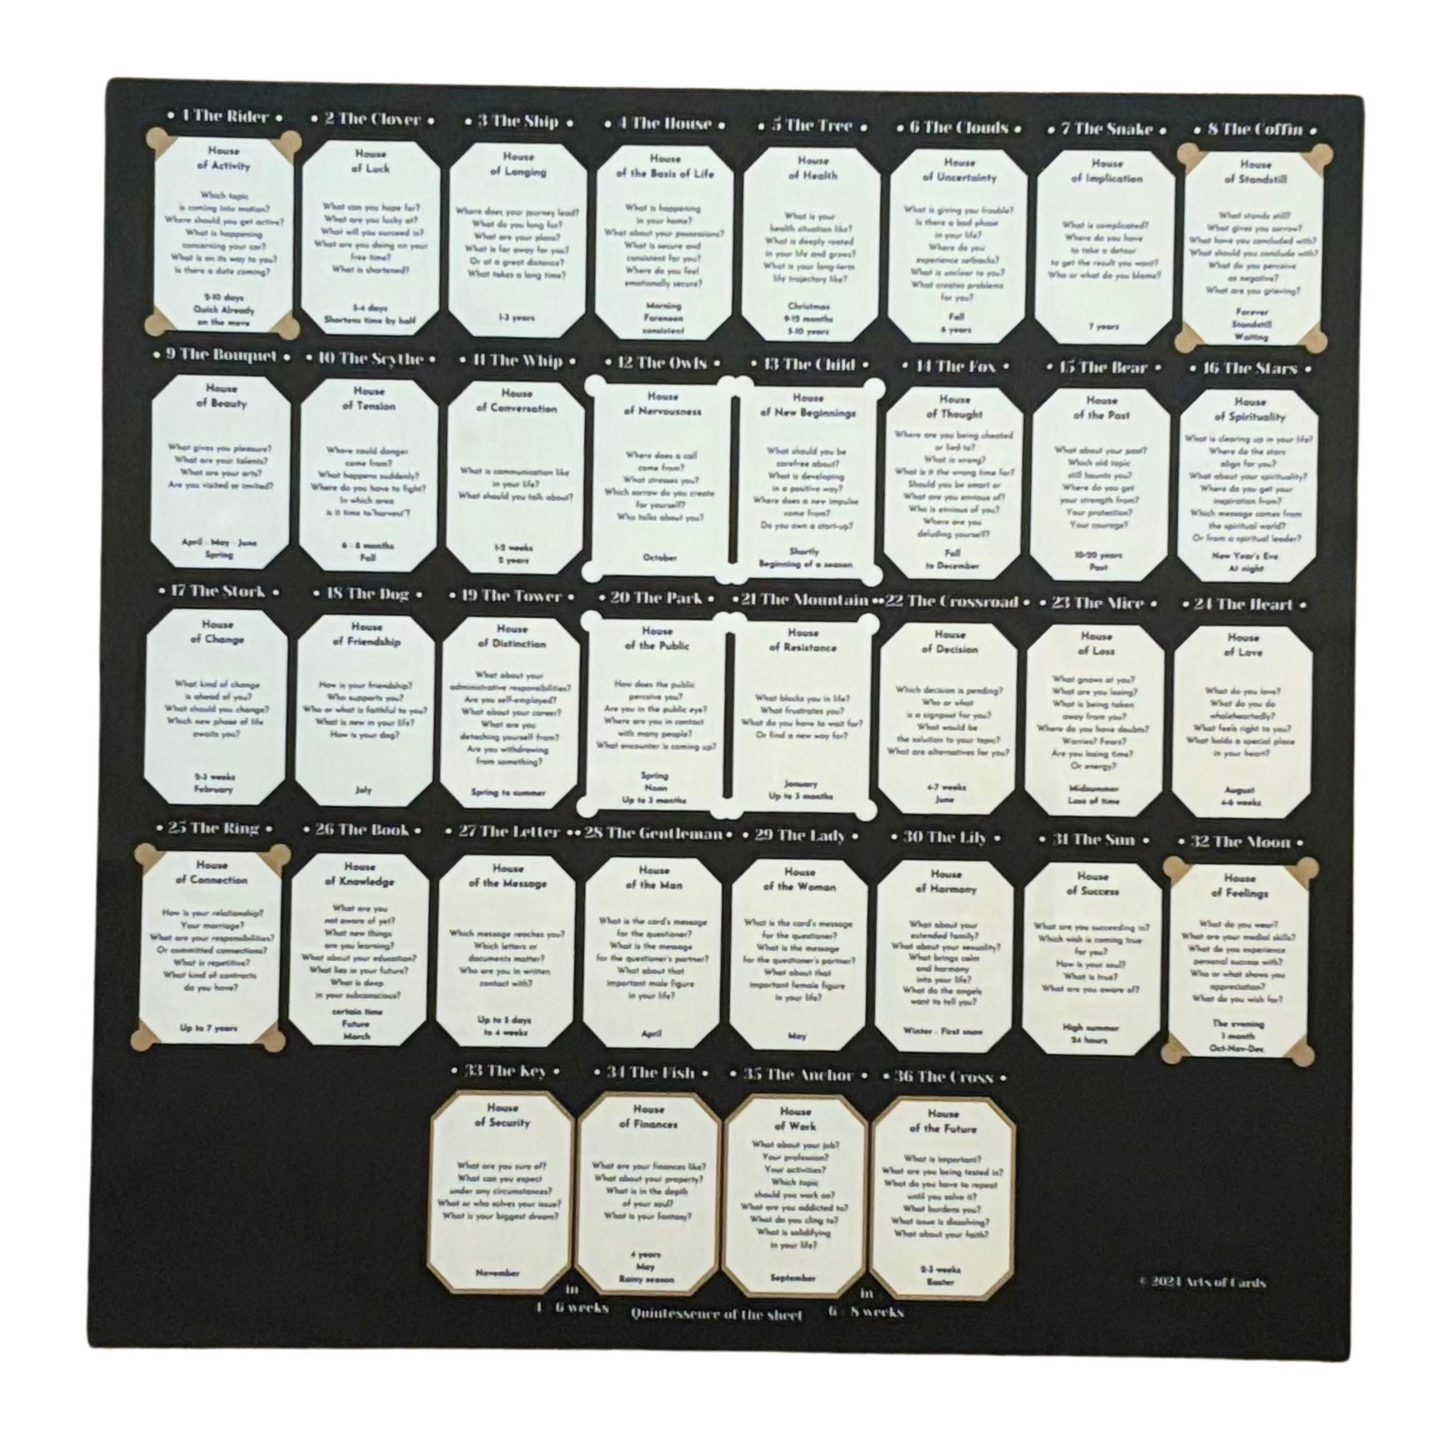 • 1 The Rider •
House
of Activity
Which topic
is coming into motion?
Where should you get active?
What is happening
concerning your car?
What is on its way to you?
Is there a date coming?
2-10 days
Quick Already
on the move
• 2 The Clover •
House
of Luck
What can you hope for?
What are you lucky at?
What will you succeed in?
What are you doing on your
free time?
What is shortened?
3-4 days
Shortens time by half
• 3 The Ship •
House
of Longing
Where does your journey lead?
What do you long for?
What are your plans?
What is far away for you?
Or at a great distance?
What takes a long time?
1-3 years
• 4 The House •
House
of the Basis of Life
What is happening
in your home?
What about your possessions?
What is secure and
consistent for you?
Where do you feel
emotionally secure?
Morning
Forenoon
consistent
• 5 The Tree •
House
of Health
What is your
health situation like?
What is deeply rooted
in your life and grows?
What is your long-term
life trajectory like?
Christmas
9-12 months
5-10 years
• 6 The Clouds •
House
of Uncertainty
What is giving you trouble?
Is there a bad phase
in your life?
Where do you
experience setbacks?
What is unclear to you?
What creates problems
for you?
Fall
6 years
• 7 The Snake •
House
of Implication
What is complicated?
Where do you have
to take a detour
to get the result you want?
Who or what do you blame?
7 years
• 8 The Coffin •
House
of Standstill
What stands still?
What gives you sorrow?
What have you concluded with?
What should you conclude with?
What do you perceive
as negative?
What are you grieving?
Forever
Standstill
Waiting
• 9 The Bouquet •
House
of Beauty
What gives you pleasure?
What are your talents?
What are your arts?
Are you visited or invited?
April - May - June
Spring
• 10 The Scythe •
House
of Tension
Where could danger
come from?
What happens suddenly?
Where do you have to fight?
In which area
is it time to "harvest"?
6 - 8 months
Fall
• 11 The Whip •
House
of Conversation
What is communication like
in your life?
What should you talk about?
1-2 weeks
2 years
• 12 The Owls •
House
of Nervousness
Where does a call
come from?
What stresses you?
Which sorrow do you create
for yourself?
Who talks about you?
October
• 13 The Child •
House
of New Beginnings
What should you be
carefree about?
What is developing
in a positive way?
Where does a new impulse
come from?
Do you own a start-up?
Shortly
Beginning of a season
• 14 The Fox •
House
of Thought
Where are you being cheated
or lied to?
What is wrong?
What is it the wrong time for?
Should you be smart or
What are you envious of?
Who is envious of you?
Where are you
deluding yourself?
Fall
to December
• 15 The Bear •
House
of the Past
What about your past?
Which old topic
still haunts you?
Where do you get
your strength from?
Your protection?
Your courage?
10-20 years
Past
• 16 The Stars •
House
of Spirituality
What is clearing up in your life?
Where do the stars
align for you?
What about your spirituality?
Where do you get your
inspiration from?
Which message comes from
the spiritual world?
Or from a spiritual leader?
New Year's Eve
At night
• 17 The Stork •
House
of Change
What kind of change
is ahead of you?
What should you change?
Which new phase of life
awaits you?
2-3 weeks
February
• 18 The Dog •
House
of Friendship
How is your friendship?
Who supports you?
Who or what is faithful to you?
What is new in your life?
How is your dog?
July
• 19 The Tower •
House
of Distinction
What about your
administrative responsibilities?
Are you self-employed?
What about your career?
What are you
detaching yourself from?
Are you withdrawing
from something?
Spring to summer
• 20 The Park •
House
of the Public
How does the public
perceive you?
Are you in the public eye?
Where are you in contact
with many people?
What encounter is coming up?
Spring
Noon
Up to 3 months
• 21 The Mountain •
House
of Resistance
What blocks you in life?
What frustrates you?
What do you have to wait for?
Or find a new way for?
January
Up to 3 months
• 22 The Crossroad •
House
of Decision
Which decision is pending?
Who or what
is a signpost for you?
What would be
the solution to your topic?
What are alternatives for you?
4-7 weeks
June
• 23 The Mice •
House
of Loss
What gnaws at you?
What are you losing?
What is being taken
away from you?
Where do you have doubts?
Worries? Fears?
Are you losing time?
Or energy?
Midsummer
Loss of time
• 24 The Heart •
House
of Love
What do you love?
What do you do
wholeheartedly?
What feels right to you?
What holds a special place
in your heart?
August
4-6 weeks
• 25 The Ring •
House
of Connection
How is your relationship?
Your marriage?
What are your responsibilities?
Or committed connections?
What is repetitive?
What kind of contracts
do you have?
Up to 7 years
• 26 The Book •
House
of Knowledge
What are you
not aware of yet?
What new things
are you learning?
What about your education?
What lies in your future?
What is deep
in your subconscious?
certain time
Future
March
• 27 The Letter •
House
of the Message
Which message reaches you?
Which letters or
documents matter?
Who are you in written
contact with?
Up to 5 days
to 4 weeks
• 28 The Gentleman •
House
of the Man
What is the card's message
for the questioner?
What is the message
for the questioner's partner?
What about that
important male figure
in your life?
April
• 29 The Lady •
House
of the Woman
What is the card's message
for the questioner?
What is the message
for the questioner's partner?
What about that
important female figure
in your life?
May
• 30 The Lily •
House
of Harmony
What about your
extended family?
What about your sexuality?
What brings calm
and harmony
into your life?
What do the angels
want to tell you?
Winter - First snow
• 31 The Sun •
House
of Success
What are you succeeding in?
Which wish is coming true
for you?
How is your soul?
What is true?
What are you aware of?
High summer
24 hours
• 32 The Moon •
House
of Feelings
What do you wear?
What are your medial skills?
What do you experience
personal success with?
Who or what shows you
appreciation?
What do you wish for?
The evening
1 month
Oct-Nov-Dec
• 33 The Key •
House
of Security
What are you sure of?
What can you expect
under any circumstances?
What or who solves your issue?
What is your biggest dream?
November
• 34 The Fish •
House
of Finances
What are your finances like?
What about your property?
What is in the depth
of your soul?
What is your fantasy?
4 years
May
Rainy season
• 35 The Anchor •
House
of Work
What about your job?
Your profession?
Your activities?
Which topic
should you work on?
What are you addicted to?
What do you cling to?
What is solidifying
in your life?
September
• 36 The Cross •
House
of the Future
What is important?
What are you being tested in?
What do you have to repeat
until you solve it?
What burdens you?
What issue is dissolving?
What about your faith?
2-3 weeks
Easter
in
4 - 6 weeks
Quintessence of the sheet
in
6 - 8 weeks
© 2024 Arts of Cards